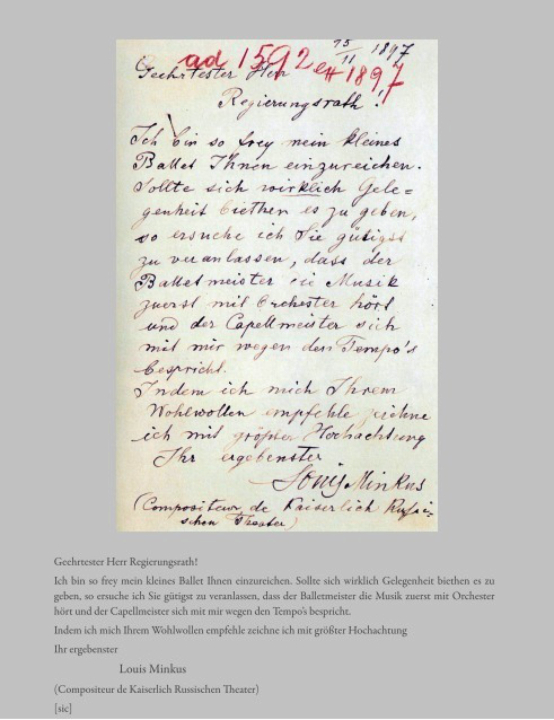 15/11 1897
ad 1592 ex 1897
Geehrtester Herr
Regierungsrath!
Ich bin so frey mein kleines
Ballet Ihnen einzureichen.
Sollte sich wirklich Gele=
genheit biethen es zu geben,
so ersuche ich Sie gütigst
zu veranlassen, dass der
Balletmeister die Musik
zuerst mit Orchester hört
und der Capellmeister sich
mit mir wegen den Tempo's
bespricht.
Indem ich mich Ihrem
Wohlwollen empfehle zeichne
ich mit größter Hochachtung
Ihr ergebenster
Louis Minkus
(Compositeur de Kaiserlich Russi=
schen Theater)
Geehrtester Herr Regierungsrath!
Ich bin so frey mein kleines Ballet Ihnen einzureichen. Sollte sich wirklich Gelegenheit biethen es zu
geben, so ersuche ich Sie gütigst zu veranlassen, dass der Balletmeister die Musik zuerst mit Orchester
hört und der Capellmeister sich mit mir wegen den Tempo's bespricht.
Indem ich mich Ihrem Wohlwollen empfehle zeichne ich mit größter Hochachtung
Ihr ergebenster
Louis Minkus
(Compositeur de Kaiserlich Russischen Theater)
[sic]